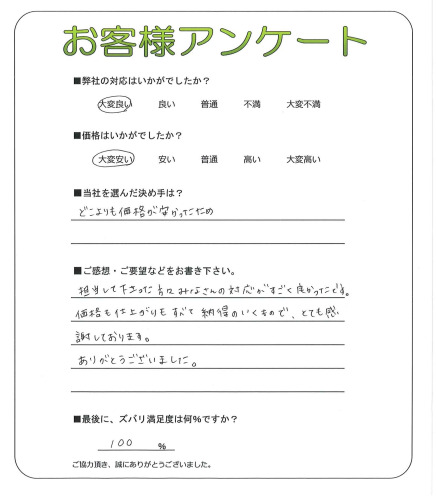 お客様アンケート
■弊社の対応はいかがでしたか？
大変良い 良い 普通 不満 大変不満
■価格はいかがでしたか？
大変安い 安い 普通 高い 大変高い
■当社を選んだ決め手は？
どこよりも価格が安かったため
■ご感想・ご要望などをお書き下さい。
担当して下さった方々みなさんの対応がすごく良かったです。
価格も仕上がりもすべて納得のいくもので、とても感
謝しております。
ありがとうございました。
■最後に、ズバリ満足度は何％ですか？
100 ％
ご協力頂き、誠にありがとうございました。